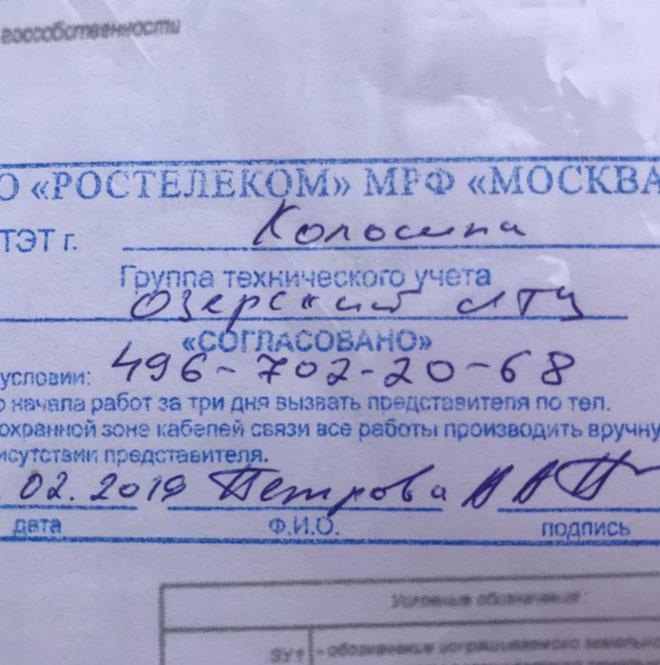 госсобственности
О «РОСТЕЛЕКОМ» МРФ «МОСКВА
ТЭТ г. Коломна
Группа технического учета
Озерский ЛТЦ
«СОГЛАСОВАНО»
условии: 496-702-20-68
о начала работ за три дня вызвать представителя по тел.
охранной зоне кабелей связи все работы производить вручну
исутствии представителя.
.02.2019 Петрова
дата Ф.И.О. подпись
Условные обозначения:
:ЗУ1 - обозначение испрашиваемого земельно